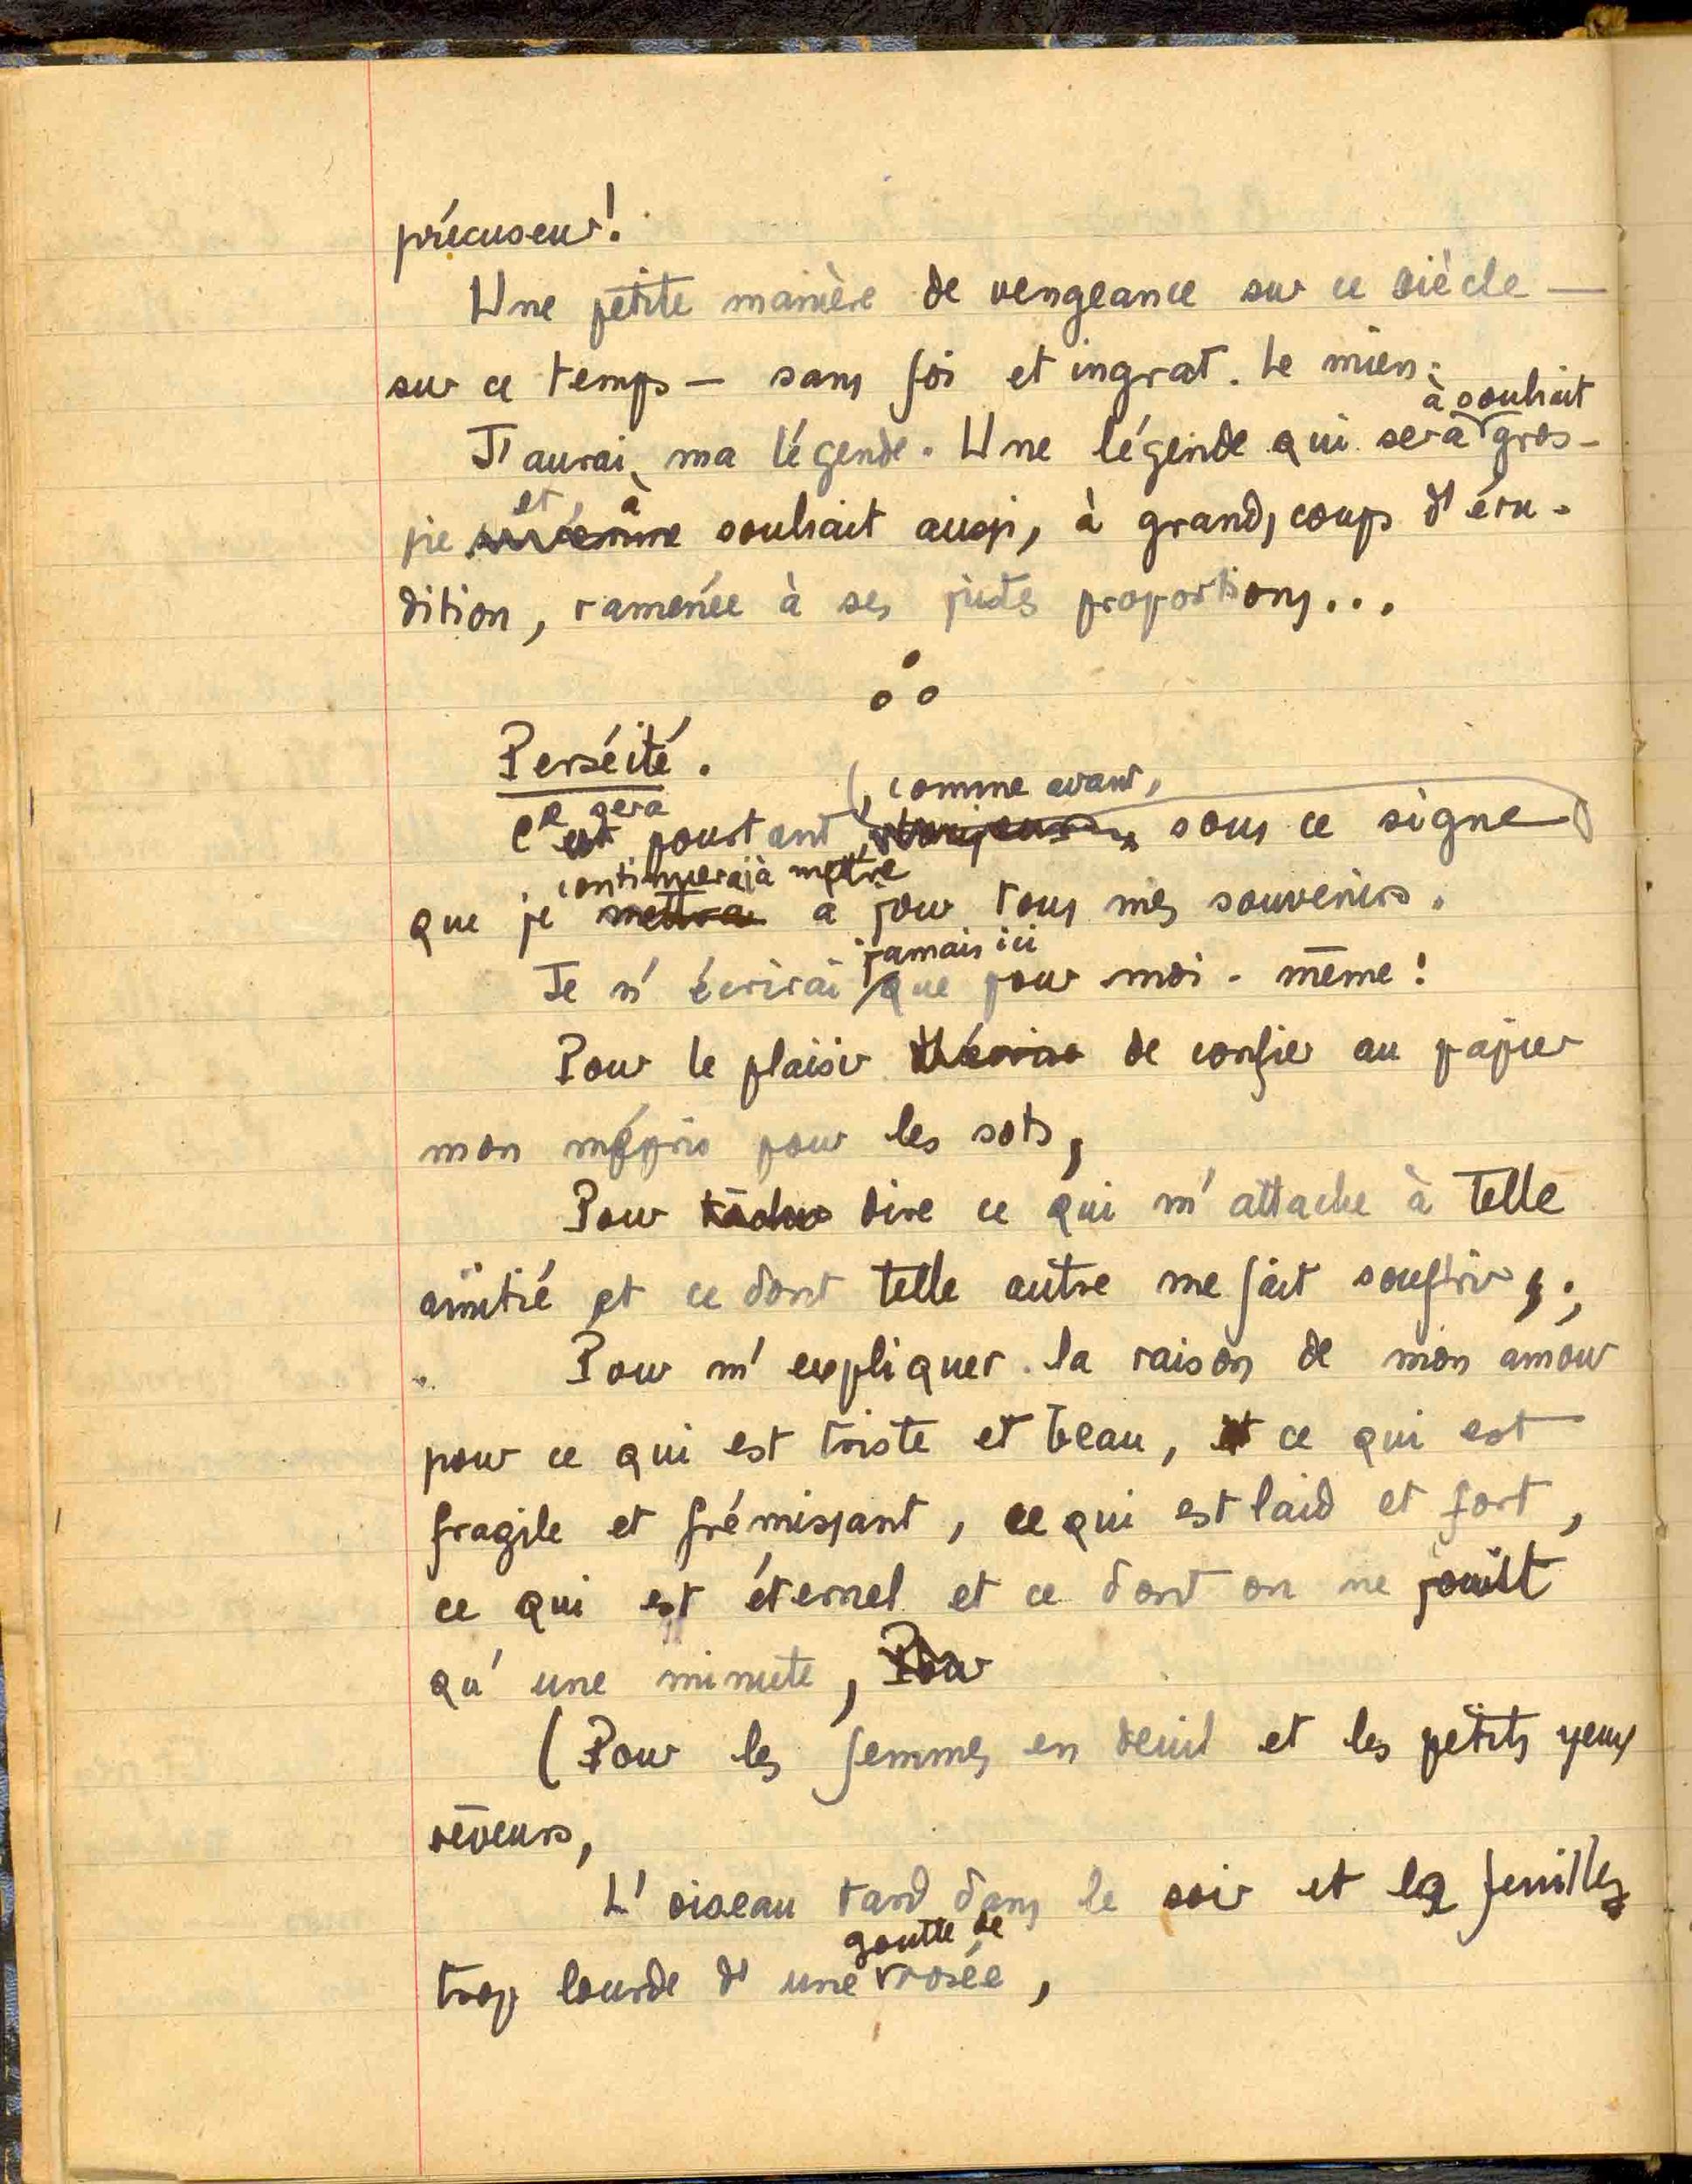 précuseur!
Une petite manière de vengeance sur ce siècle —
sur ce temps — sans foi et ingrat. Le mien.
à souhait
J'aurai ma légende. Une légende qui sera gros-
et à
sie souhait aussi, à grands coups d'éru-
dition, ramenée à ses justes proportions...
Perséité.
Ce sera , comme avant,
C'est pourtant toujours, sous ce signe
continuerai à mettre
que je mettrai à jour tous mes souvenirs.
jamais ici
Je n'écrirai que pour moi-même!
Pour le plaisir d'écrire de confier au papier
mon mépris pour les sots,
Pour tâcher dire ce qui m'attache à telle
amitié et ce dont telle autre me fait souffrir;
Pour m'expliquer la raison de mon amour
pour ce qui est triste et beau, et ce qui est
fragile et frémissant, ce qui est laid et fort,
ce qui est éternel et ce dont on ne jouit
qu'une minute, Pour
(Pour les femmes en deuil et les petits yeux
rêveurs,
L'oiseau tard dans le soir et la feuille
goutte de
trop lourde d'une rosée,